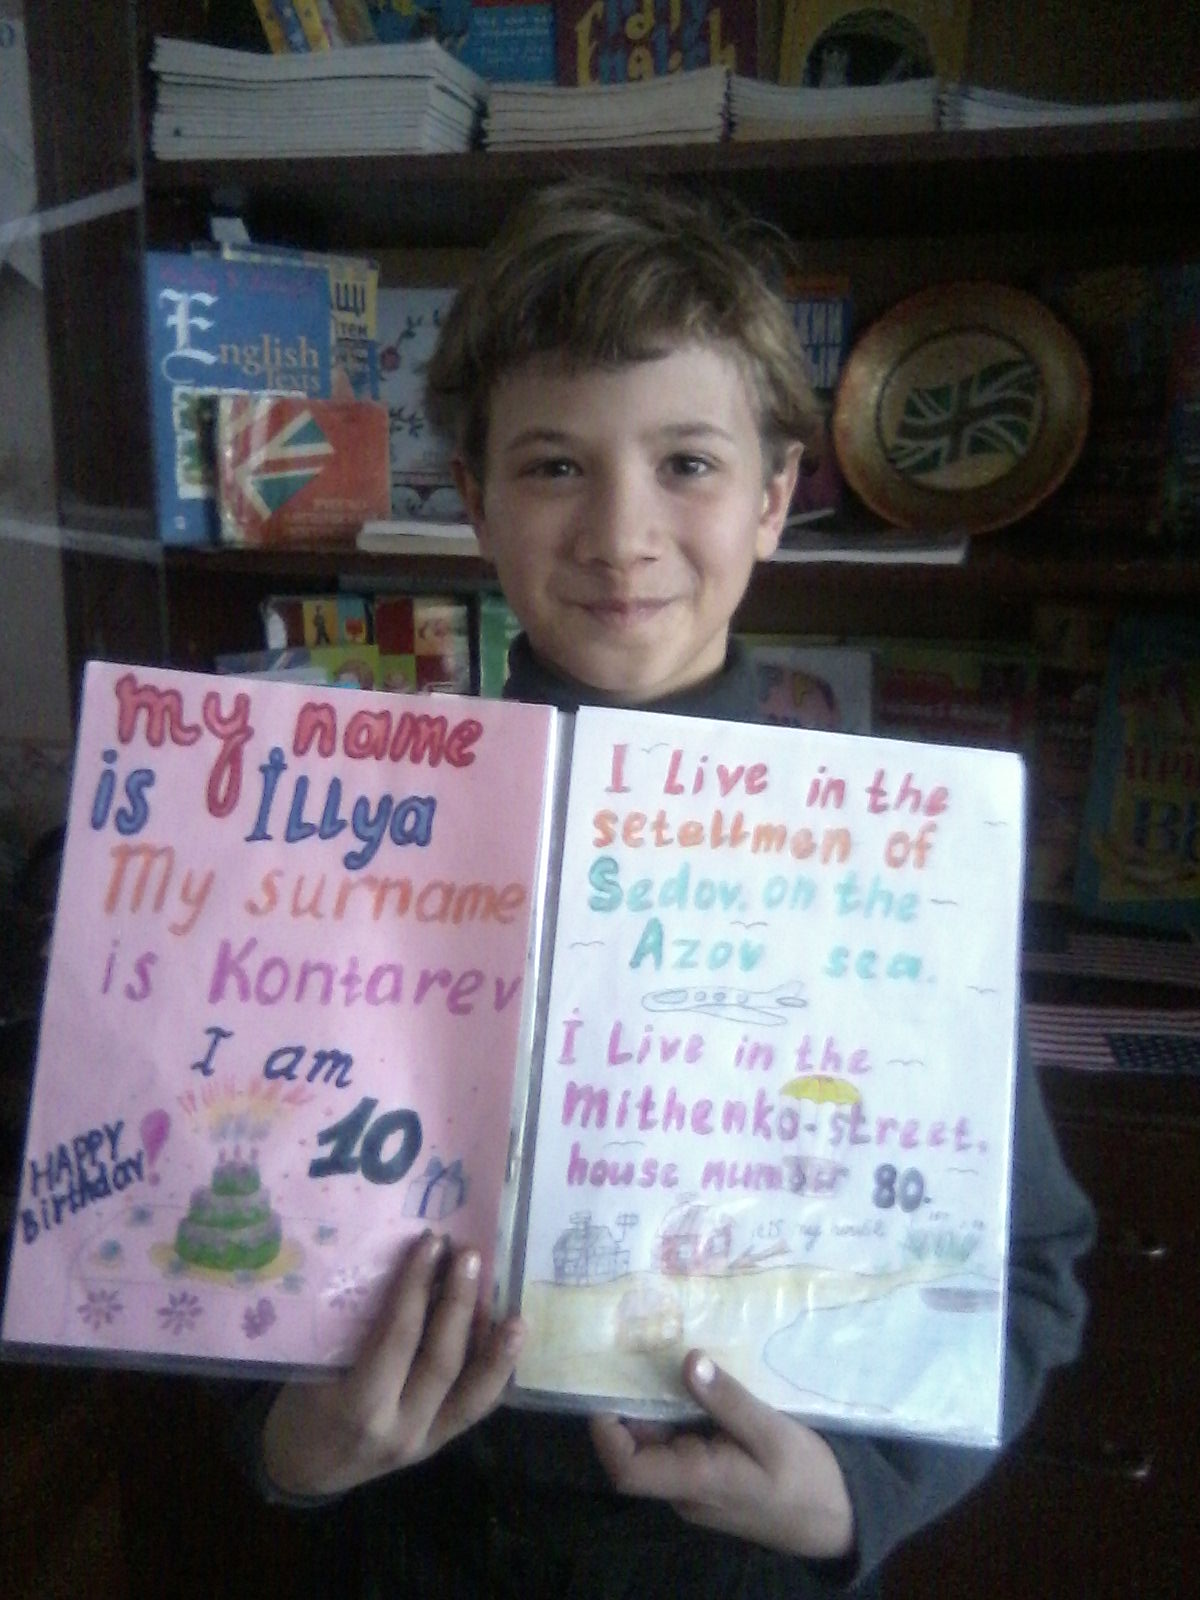 English
Texts
my name
is İLLya
My surname
is Kontarev
I am
10
HAPPY
Birthday!
I Live in the
setellmen of
Sedov. on the
Azov sea.
İ Live in the
Mithenko-street,
house number 80.